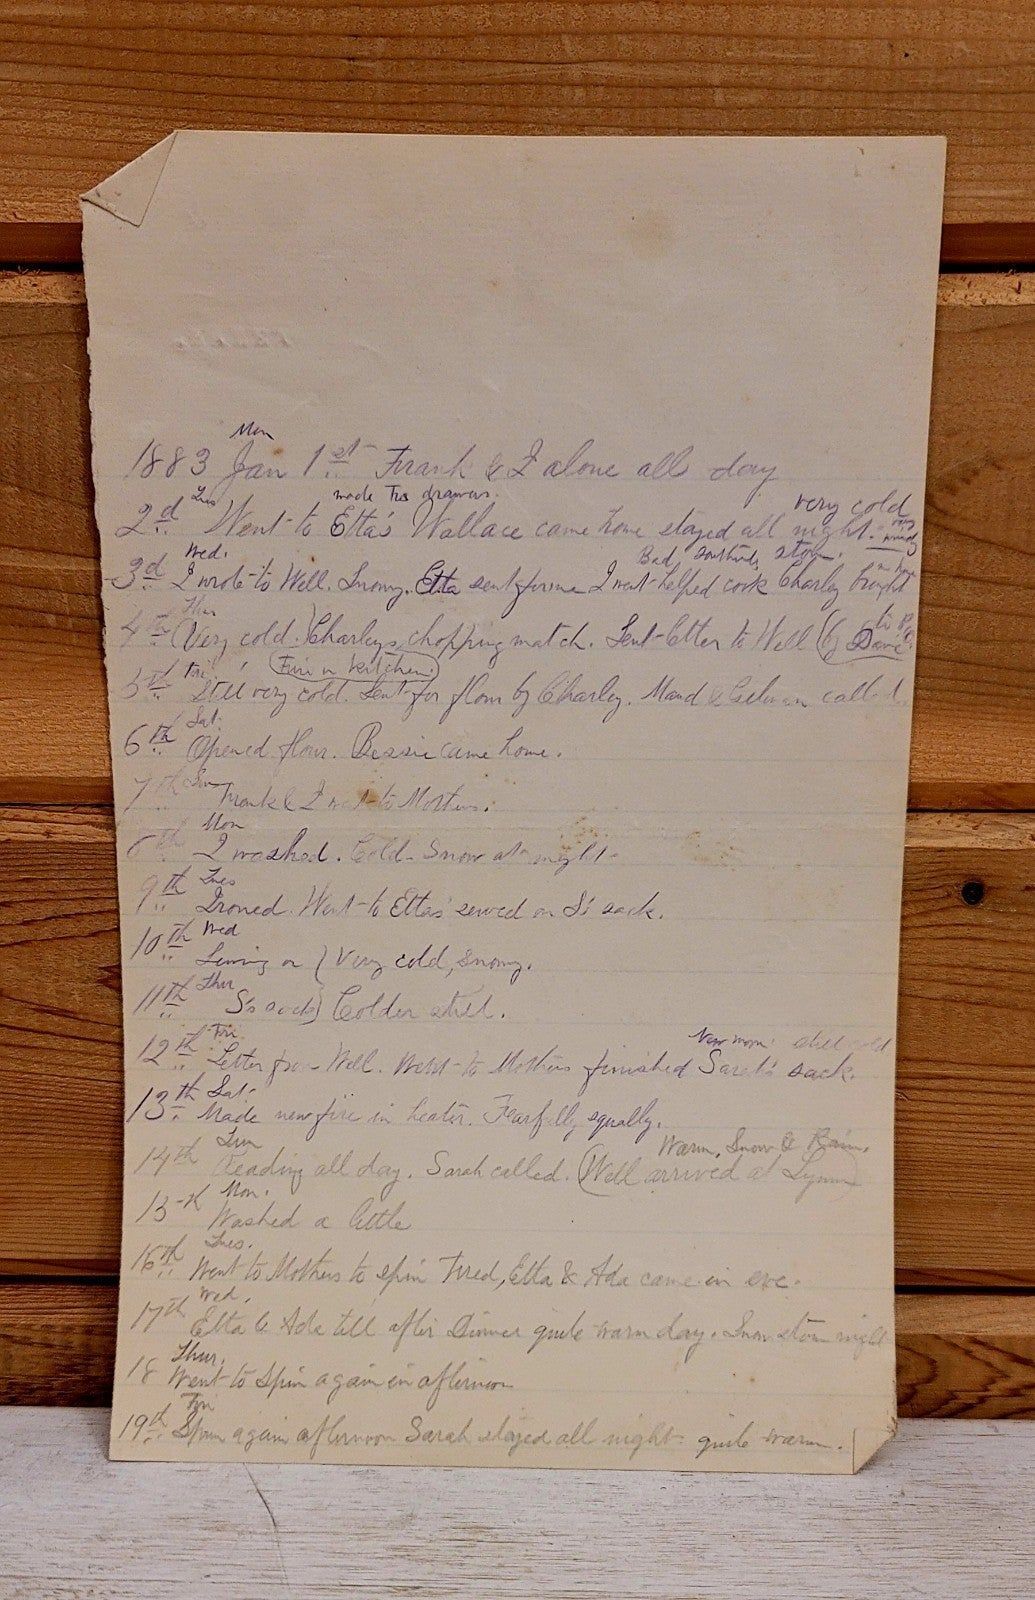 Mon
1883 Jan 1st Frank & I alone all day
made Fra drawers. very cold
2d Tues Went to Etta's Wallace came home stayed all night. very windy
Wed. Bad southerly storm.
3d I wrote to Well. Snowy. Etta sent for me I went helped cook Charley brought
Thur to P.O.
4th (Very cold.) Charleys chopping match. Sent letter to Well (by Dave
Fri (Fire in kitchen.)
5th Still very cold. Sent for flour by Charley. Maud & called
Sat.
6th Opened flour. Bessie came home.
7th Sun Frank & I went to Mothers.
Mon
8th I washed. Cold. Snow at night.
Tues
9th Ironed. Went to Ettas sewed on S's sack.
Wed
10th Sewing on } Very cold, snowy.
Thur
11th S's sack } Colder still.
Fri. New moon. still cold
12th Letter from Well. Went to Mothers finished Sarah's sack.
Sat.
13th Made new fire in heater. Fearfully squally.
Sun Warm, Snow & Rain.
14th Reading all day. Sarah called. (Well arrived at Lynn)
Mon.
15th Washed a little
Tues.
16th Went to Mothers to spin Fred, Etta & Ada came in eve.
Wed.
17th Etta & Ada till after Dinner quite warm day. Snow storm night
Thur.
18 Went to Spin again in afternoon
Fri
19th Spun again afternoon Sarah stayed all night quite warm.